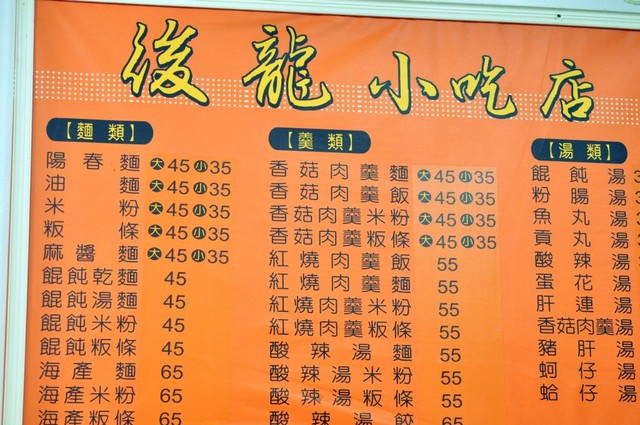 後龍小吃店
【麵類】
陽春麵 大45 小35
油麵 大45 小35
米粉 大45 小35
粄條 大45 小35
麻醬麵 大45 小35
餛飩乾麵 45
餛飩湯麵 45
餛飩米粉 45
餛飩粄條 45
海產麵 65
海產米粉 65
海產粄條 65
【羹類】
香菇肉羹麵 大45 小35
香菇肉羹飯 大45 小35
香菇肉羹米粉 大45 小35
香菇肉羹粄條 大45 小35
紅燒肉羹飯 55
紅燒肉羹麵 55
紅燒肉羹米粉 55
紅燒肉羹粄條 55
酸辣湯麵 55
酸辣湯米粉 55
酸辣湯餃 65
【湯類】
餛飩湯
粉腸湯
魚丸湯
貢丸湯
酸辣湯
蛋花湯
肝連湯
香菇肉羹湯
豬肝湯
蚵仔湯
蛤仔湯